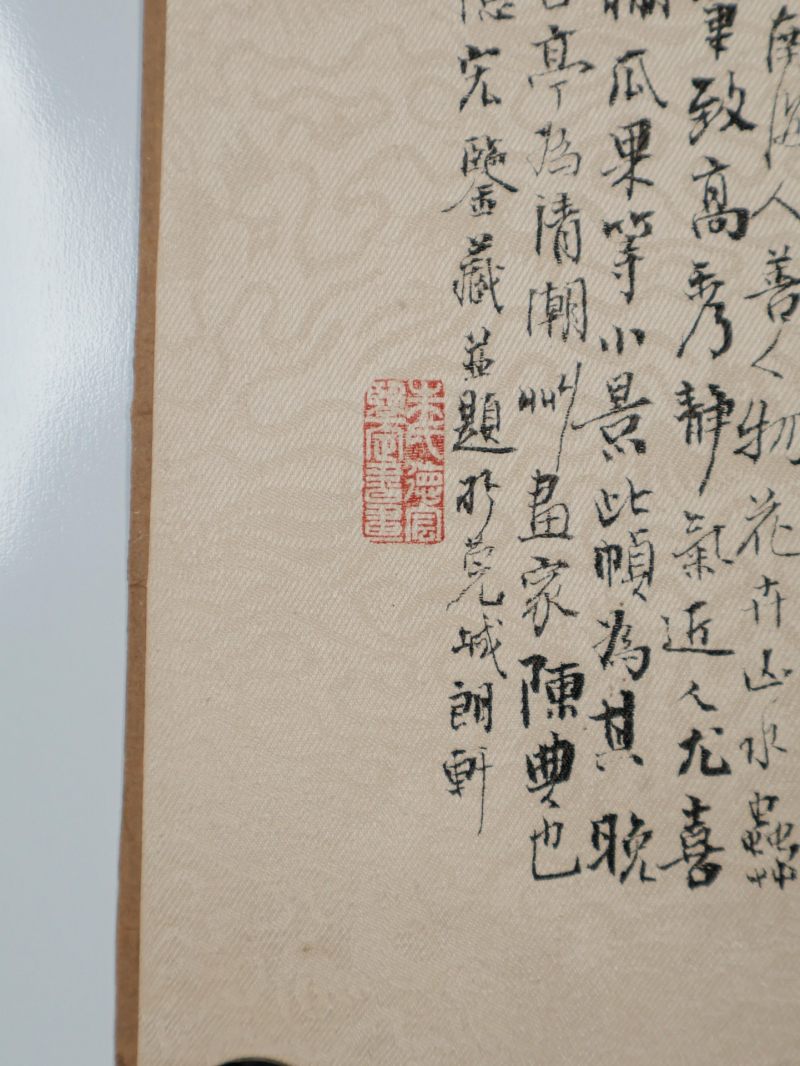 南海人善人物花卉山水蟲草
筆致高秀靜氣近人尤喜
瓜果等小景此幀為其晚
亭為清潮州畫家陳典也
德宏鑒藏並題於莞城朗軒
朱氏德宏
鑒定書畫